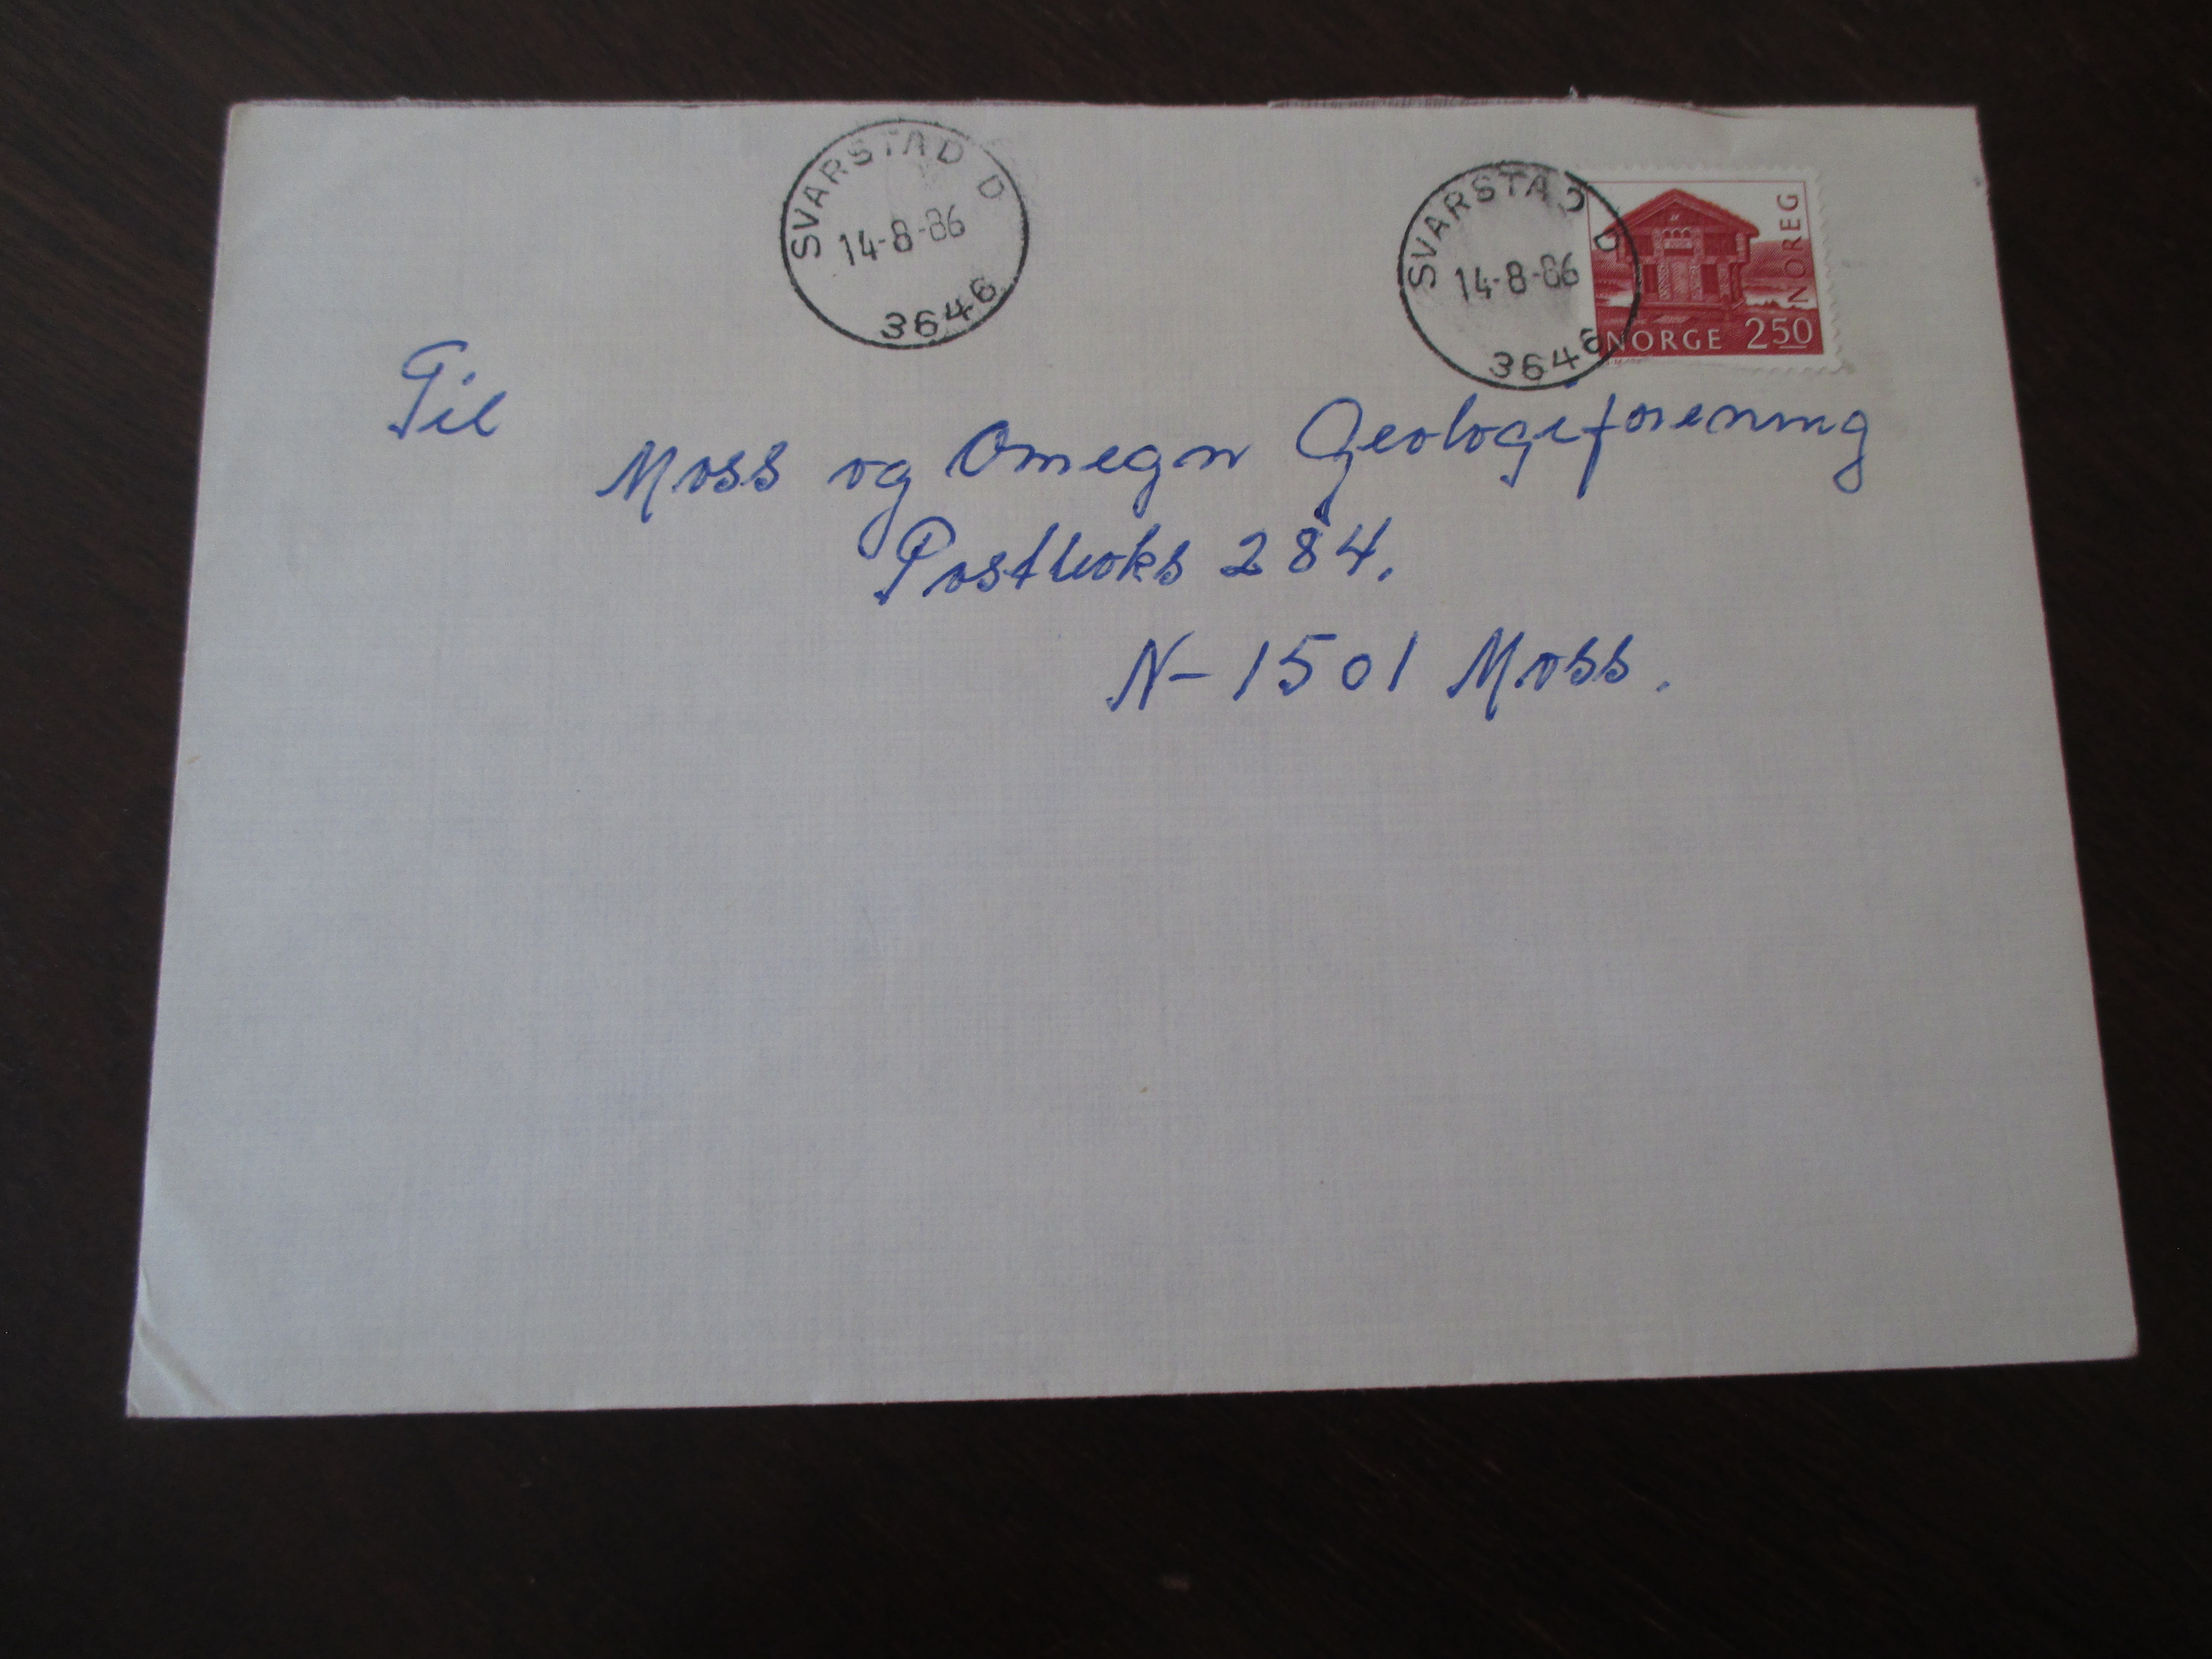 SVARSTAD D
14-8-86
3646
SVARSTAD D
14-8-86
3646
NOREG
NORGE 250
Til
Moss og Omegn Geologiforening
Postboks 284.
N-1501 Moss.